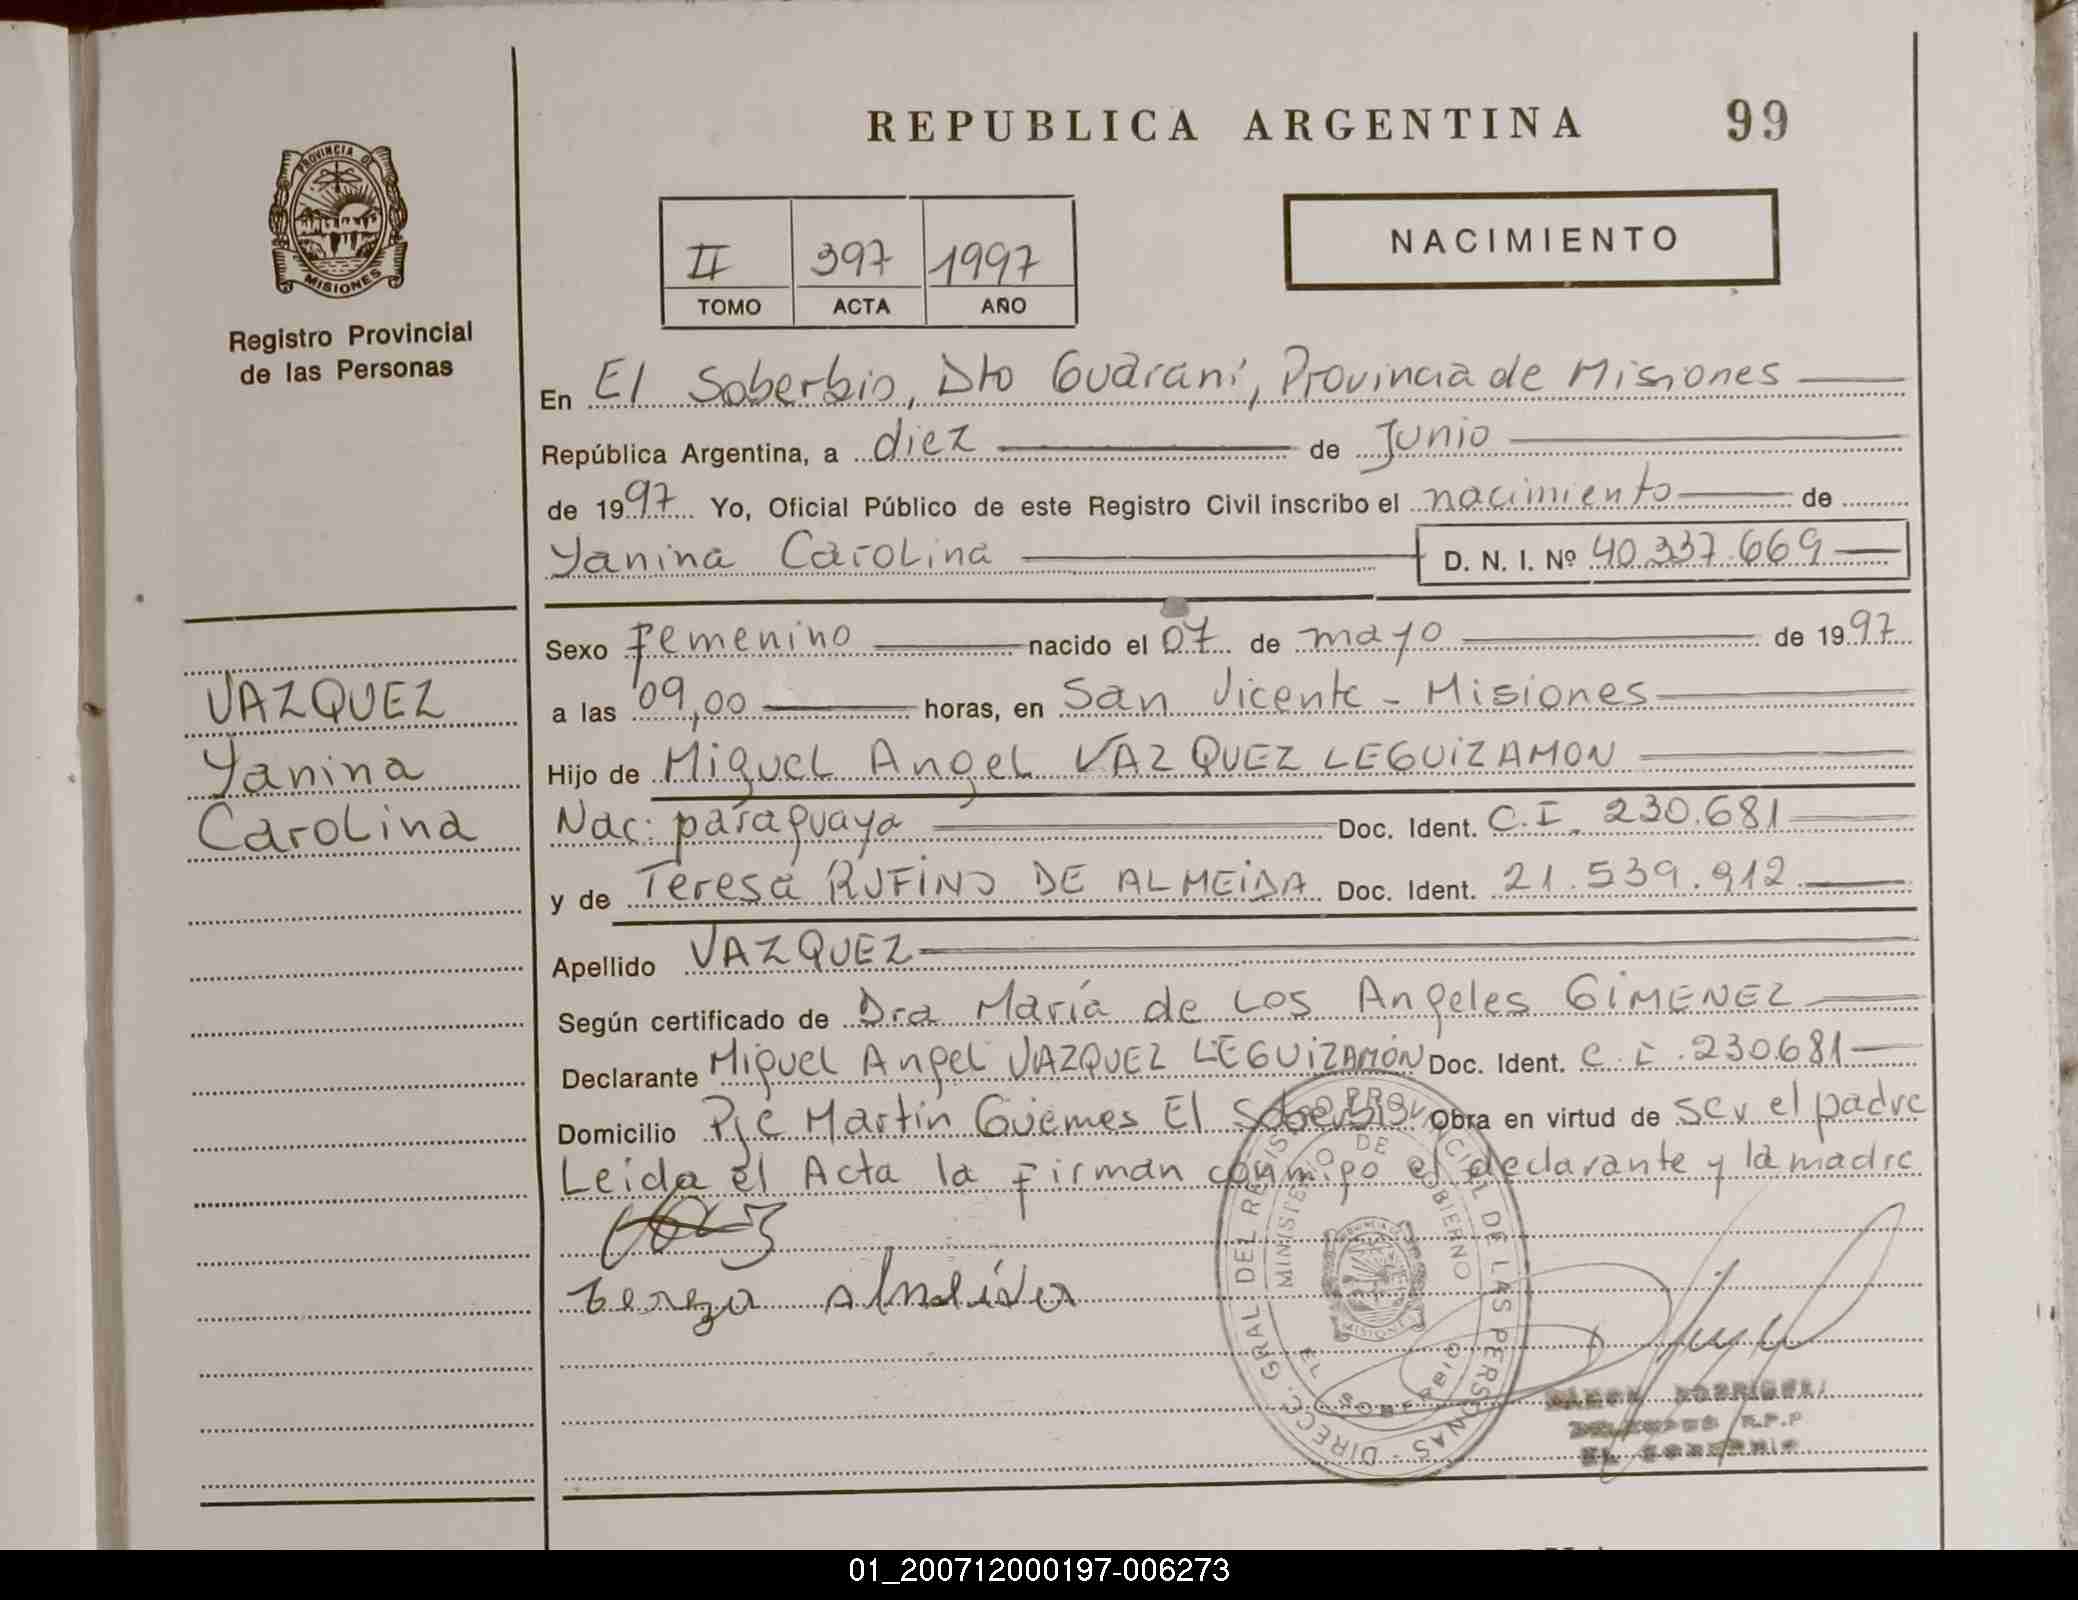 REPUBLICA ARGENTINA 99
PROVINCIA DE
MISIONES
Registro Provincial
de las Personas
II 397 1997
TOMO ACTA AÑO
NACIMIENTO
En El Soberbio, Dto Guaraní, Provincia de Misiones
República Argentina, a diez de Junio
de 1997 Yo, Oficial Público de este Registro Civil inscribo el nacimiento de
Yanina Carolina D. N. I. Nº 40.337.669
Sexo Femenino nacido el 07 de mayo de 1997
a las 09,00 horas, en San Vicente - Misiones
Hijo de Miguel Angel VAZQUEZ LEGUIZAMON
Nac: paraguaya Doc. Ident. C.I. 230.681
y de Teresa RUFINO DE ALMEIDA Doc. Ident. 21.539.912
Apellido VAZQUEZ
Según certificado de Dra María de Los Angeles GIMENEZ
Declarante Miguel Angel VAZQUEZ LEGUIZAMÓN Doc. Ident. C.I. 230.681
Domicilio Pje Martín Güemes El Soberbio Obra en virtud de ser el padre
Leida el Acta la firman conmigo el declarante y la madre
VAZQUEZ
Yanina
Carolina
tereza almeida
DIRECC. GRAL DEL REGISTRO PROVINCIAL DE LAS PERSONAS
MINISTERIO DE GOBIERNO
PROVINCIA DE
MISIONES
EL SOBERBIO
RODRIGUEZ
R.P.P
EL SOBERBIO
01_200712000197-006273